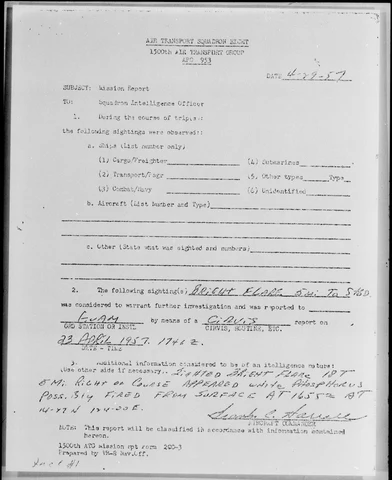 AIR TRANSPORT SQUADRON EIGHT
1500th AIR TRANSPORT GROUP
APO 953
DATE 4-29-57
SUBJECT: Mission Report
TO: Squadron Intelligence Officer
1. During the course of
the following sightings were observed:
a. Ships (List number only)
(1) Cargo/Freighter (4) Submarines
(2) Transport/Psgr (5) Other types Type
(3) Combat/Navy (6) Unidentified
b. Aircraft (List Number and Type)
c. Other (State what was sighted and numbers)
2. The following sighting(s) BRIGHT FLARE
was considered to warrant further investigation and was reported to
GUAM by means of a CIRVIS report on
GND STATION OR INST. CIRVIS, ROUTINE, ETC.
23 APRIL 1957 1740Z.
DATE - TIME
3. Additional information considered to be of an intelligence nature:
(Use other side if necessary. SIGHTED BRIGHT FLARE
RIGHT OF COURSE APPEARED WHITE PHOSPHORUS
POSSIBLY FIRED FROM SURFACE AT 1655Z AT
14-27N 174-20E.
AIRCRAFT COMMANDER
NOTE: This report will be classified in accordance with information contained
hereon.
1500th ATG mission rpt form 200-3
Prepared by VR-8 Nav.Off.